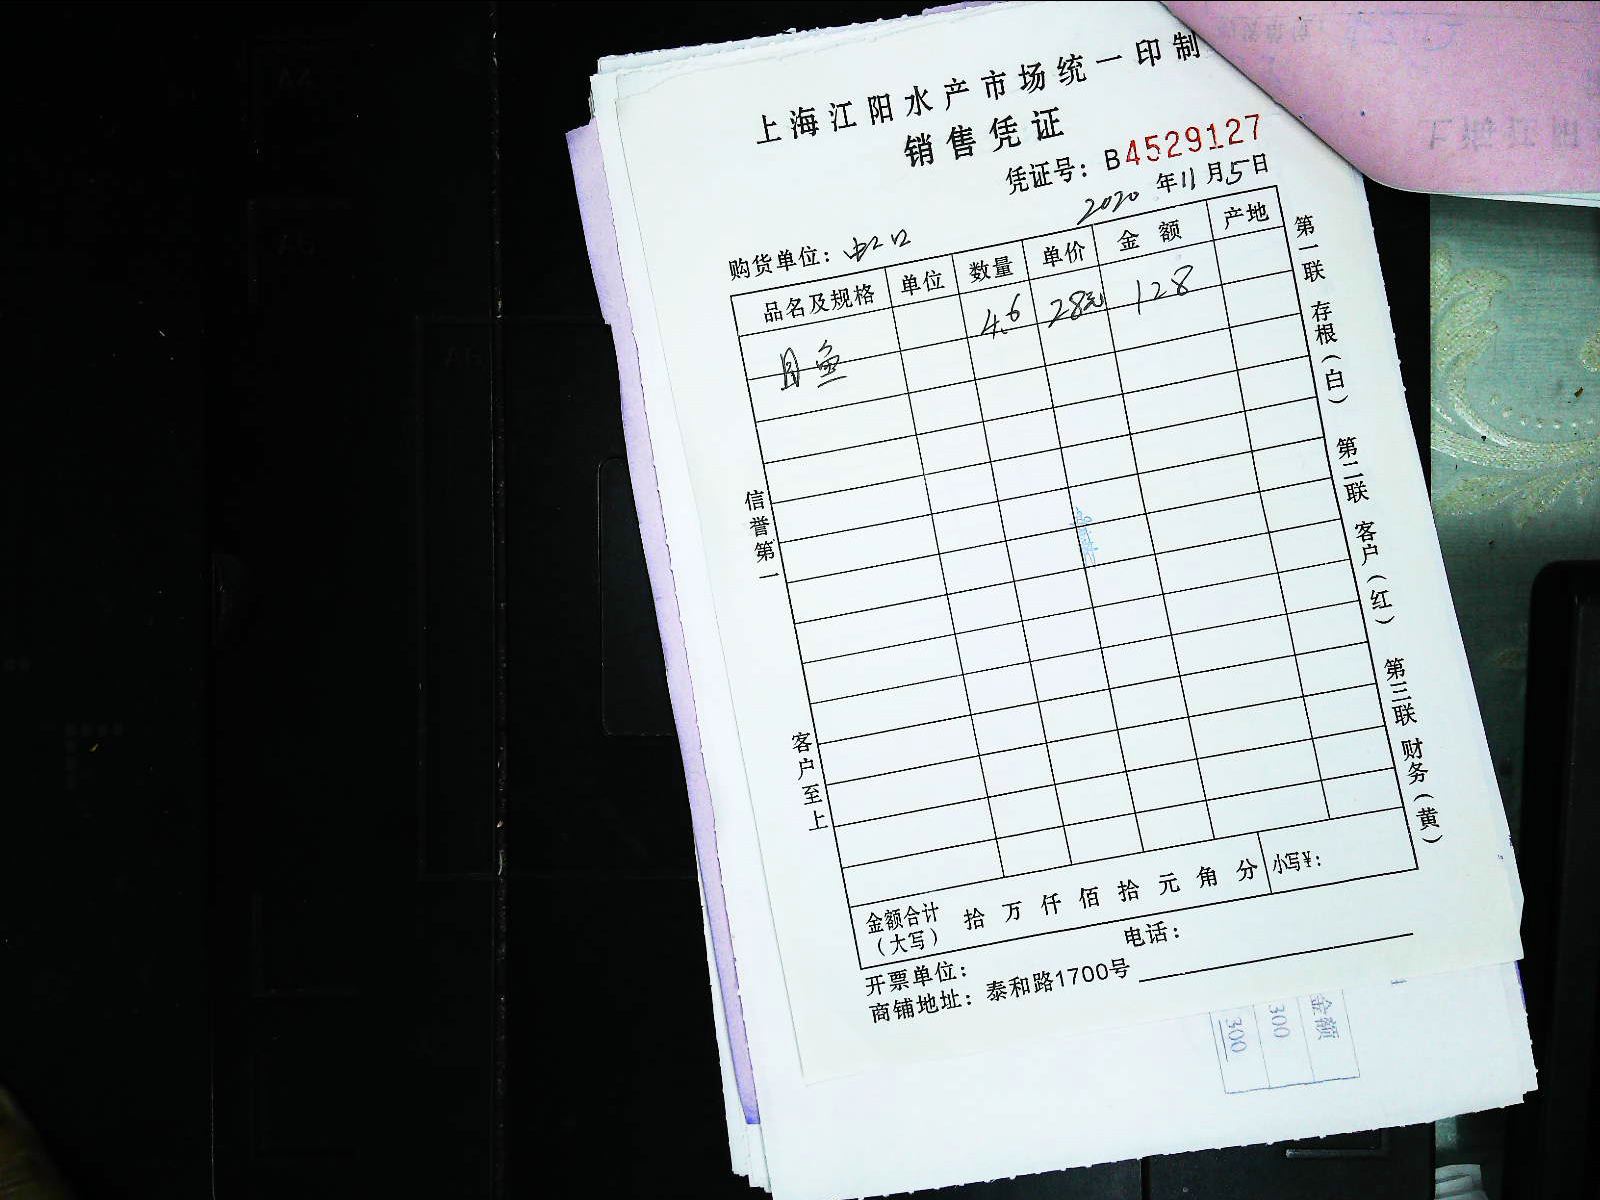 上海江阳水产市场统一印制
销售凭证
凭证号：B4529127
2020 年 11 月 5 日
购货单位：
品名及规格 单位 数量 单价 金额 产地
目鱼 4.6 28元 128
信誉第一
客户至上
第一联 存根（白） 第二联 客户（红） 第三联 财务（黄）
金额合计（大写） 拾 万 仟 佰 拾 元 角 分 小写¥：
开票单位： 电话：
商铺地址：泰和路1700号
金额
300
300